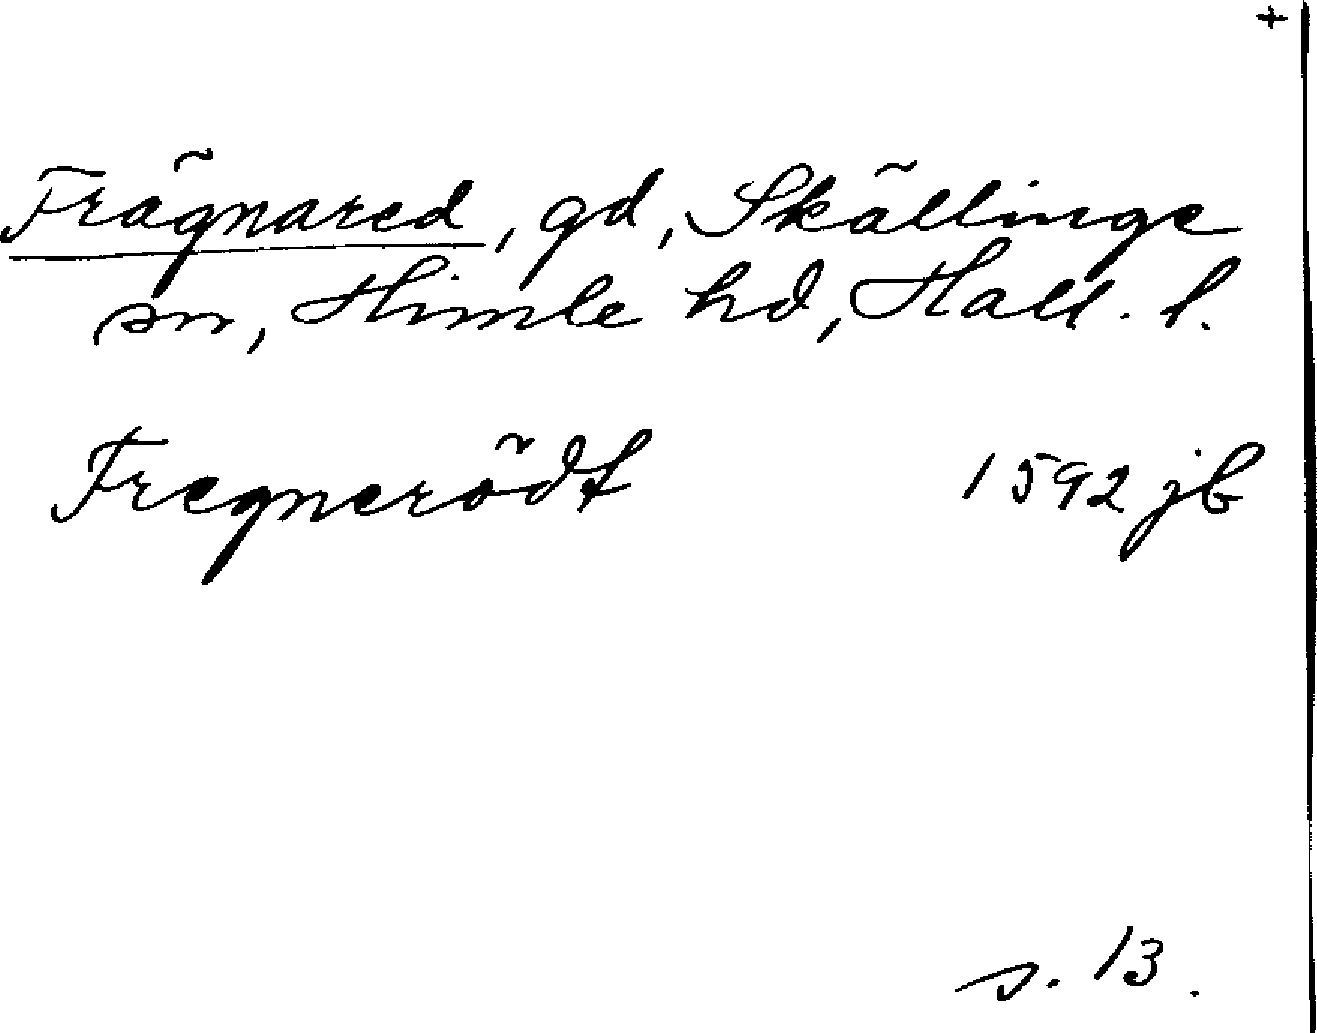 +
Frägnared, gd, Skällinge
sn, Himle hd, Hall. l.
Fregnerödt 1592 jb
s. 13.